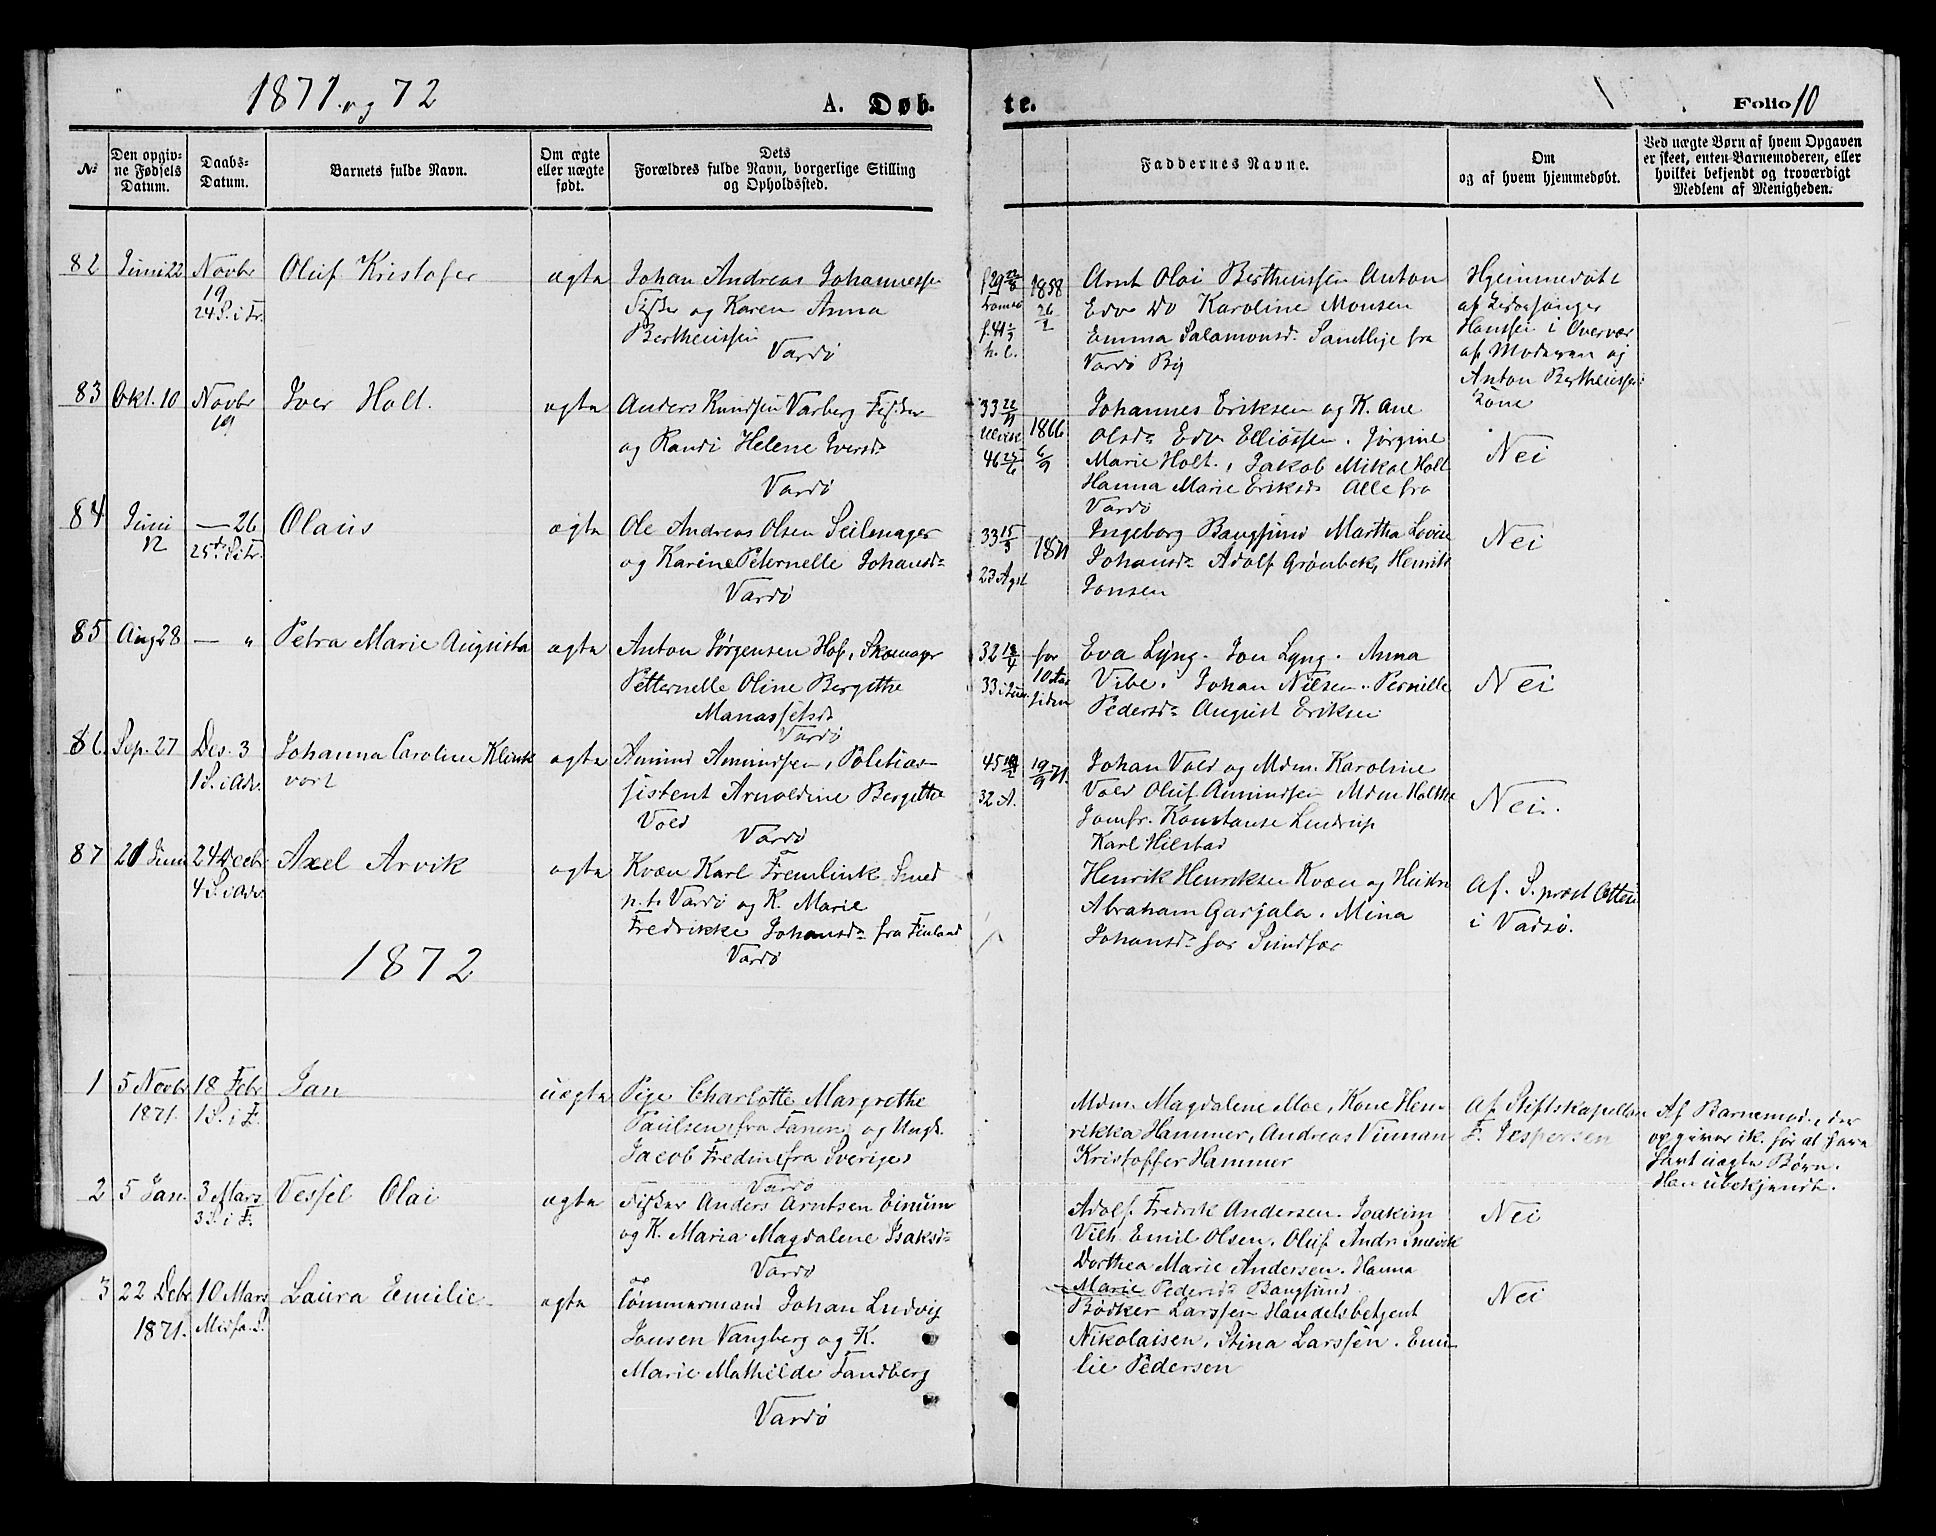 1871 og 72
A. Døb-
te.
Folio 10
No
Den opgiv-
ne Fødsels
Datum.
Daabs-
Datum.
Barnets fulde Navn.
Om ægte
eller uægte
født.
Dets
Forældres fulde Navn, borgerlige Stilling
og Opholdssted.
Faddernes Navne.
Om
og af hvem hjemmedøbt.
Ved uægte Børn af hvem Opgaven
er skeet, enten Barnemoderen, eller
hvilket bekjendt og troværdigt
Medlem af Menigheden.
82 Juni 22 Novbr
19
24 S. i Tr.
Oluf Kristofer
ægte
Johan Andreas Johannessen
Fisker og Karen Anna
Bertheussen
Vardø
1858
26
Arnt Olai Bertheussen Anton
Edv Do Karoline Monsen
Emma Salamonsd. Samtlige fra
Vardø By
Hjemmedøbt
af
Hanssen i Overvær
af Moderen og
Anton Bertheussens
Kone
83 Okt. 10 Novbr
19
Iver Holt.
ægte
Anders Knudsen Varberg Fisker
og Randi Helene Iversd.
Vardø
33
46 25/6
1866
6/9
Johannes Eriksen og K. Ane
Olsd. Edv Elliassen. Jørgine
Marie Holt., Jakob Mikal Holt
Hanna Marie Eriksd. Alle fra
Vardø
Nei
84 Juni
12
— 26
25de S. i Tr.
Olaus
ægte
Ole Andreas Olsen Seilmager
og Karine Peternelle Johansd.
Vardø
33 15/3
23 Agst
1871
Ingeborg Bangsund Martha Lovise
Johansd. Adolf Grønbek, Henrik
Jonsen
Nei
85 Aug 28 — "
Petra Marie Augusta
ægte
Anton Jørgensen Hof, Skomager
Petternelle Oline Bergithe
Manassesd.
Vardø
32
33
for
10 Aar
siden
Eva Lyng. Jon Lyng. Anna
Vibe. Johan Nilsen. Pernille
Pedersd. August Eriksen
Nei
86 Sep. 27 Des. 3
1 S. i Adv.
Johanna Caroline Klink
vort
ægte
Amund Amundsen, Politias-
sistent Arnoldine Bergitte
Vold
Vardø
45
32 A.
19/9 71.
Johan Vold og Mdm. Karoline
Vold Oluf Amundsen Mdm Holthe
Jomfr. Konstanse Lindrup
Karl Hilstad
Nei.
87 21 Juni 24 Decbr
4 S. i Adv.
Axel Arvik
ægte
Kvæn Karl Fremlink Smed
n. t. Vardø og K. Marie
Fredrikke Johansd. fra Finland
Vardø
Henrik Henriksen Kvæn og Hustru
Abraham Garjala. Mina
Johansd. for Sundfær
Af. S. præst Otter
i Vadsø.
1872
1 5 Novbr
1871.
18 Febr
1 S. i F.
Jan
uægte
Pige Charlotte Margrethe
Paulsen fra Tanen og Ungk.
Jacob Fredin fra Sverige
Vardø
Mdm. Magdalene Moe, Kone Hen-
rikka Hammer, Andreas Vinman
Kristoffer Hammer
Af Stiftskapellan
F. Jespersen
Af Barnemod., der
opgiver ik. før at have
havt uægte Børn.
Han ubekjendt.
2 5 Jan. 3 Mars
3 S. i F.
Vessel Olai
ægte
Fisker Anders Arntsen Einum
og K. Maria Magdalene Isaksd.
Vardø
Adolf Fredrik Andersen. Joakim
Vilh. Emil Olsen. Oluf Andr. Snevik
Dorthea Marie Andersen. Hanna
Marie Pedersd. Bangsund
Nei
3 22 Debr
1871.
10 Mars
Midfa. S.
Laura Emilie
ægte
Tømmermand Johan Ludvig
Jonsen Vangberg og K.
Marie Mathilde Tandberg
Vardø
Bødker Larssen Handelsbetjent
Nikolaisen, Stina Larssen. Emi-
lie Pedersen
Nei